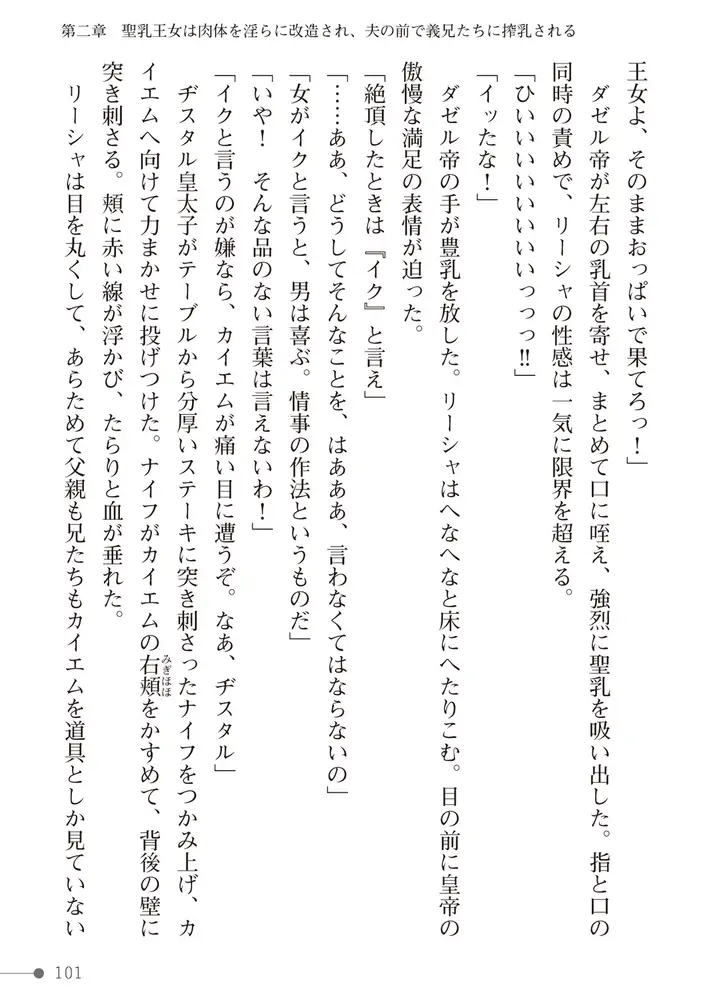 第二章　聖乳王女は肉体を淫らに改造され、夫の前で義兄たちに搾乳される
王女よ、そのままおっぱいで果てろっ！」
　ダゼル帝が左右の乳首を寄せ、まとめて口に咥え、強烈に聖乳を吸い出した。指と口の
同時の責めで、リーシャの性感は一気に限界を超える。
「ひいいいいいいいいっっっ!!」
「イッたな！」
　ダゼル帝の手が豊乳を放した。リーシャはへなへなと床にへたりこむ。目の前に皇帝の
傲慢な満足の表情が迫った。
「絶頂したときは『イク』と言え」
「……ああ、どうしてそんなことを、はあああ、言わなくてはならないの」
「女がイクと言うと、男は喜ぶ。情事の作法というものだ」
「いや！　そんな品のない言葉は言えないわ！」
「イクと言うのが嫌なら、カイエムが痛い目に遭うぞ。なあ、ヂスタル」
　ヂスタル皇太子がテーブルから分厚いステーキに突き刺さったナイフをつかみ上げ、カ
イエムへ向けて力まかせに投げつけた。ナイフがカイエムの右頬みぎほほをかすめて、背後の壁に
突き刺さる。頬に赤い線が浮かび、たらりと血が垂れた。
　リーシャは目を丸くして、あらためて父親も兄たちもカイエムを道具としか見ていない
101